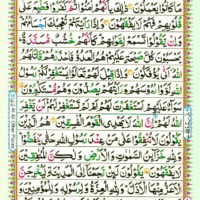 مَا كَانُوْا يَعْمَلُوْنَ ذٰلِكَ بِاَنَّهُمْ اٰمَنُوْا ثُمَّ كَفَرُوْا فَطُبِعَ عَلٰى
قُلُوْبِهِمْ فَهُمْ لَا يَفْقَهُوْنَ وَاِذَا رَاَيْتَهُمْ تُعْجِبُكَ اَجْسَامُهُمْ
وَاِنْ يَّقُوْلُوْا تَسْمَعْ لِقَوْلِهِمْ كَاَنَّهُمْ خُشُبٌ مُّسَنَّدَةٌ
يَحْسَبُوْنَ كُلَّ صَيْحَةٍ عَلَيْهِمْ هُمُ الْعَدُوُّ فَاحْذَرْهُمْ قَاتَلَهُمُ
اللّٰهُ اَنّٰى يُؤْفَكُوْنَ وَاِذَا قِيْلَ لَهُمْ تَعَالَوْا يَسْتَغْفِرْ لَكُمْ رَسُوْلُ
اللّٰهِ لَوَّوْا رُءُوْسَهُمْ وَرَاَيْتَهُمْ يَصُدُّوْنَ وَهُمْ مُّسْتَكْبِرُوْنَ
سَوَآءٌ عَلَيْهِمْ اَسْتَغْفَرْتَ لَهُمْ اَمْ لَمْ تَسْتَغْفِرْ لَهُمْ لَنْ يَّغْفِرَ
اللّٰهُ لَهُمْ اِنَّ اللّٰهَ لَا يَهْدِى الْقَوْمَ الْفٰسِقِيْنَ هُمُ الَّذِيْنَ
يَقُوْلُوْنَ لَا تُنْفِقُوْا عَلٰى مَنْ عِنْدَ رَسُوْلِ اللّٰهِ حَتّٰى يَنْفَضُّوْا
وَلِلّٰهِ خَزَآئِنُ السَّمٰوٰتِ وَالْاَرْضِ وَلٰكِنَّ الْمُنٰفِقِيْنَ
لَا يَفْقَهُوْنَ يَقُوْلُوْنَ لَئِنْ رَّجَعْنَآ اِلَى الْمَدِيْنَةِ لَيُخْرِجَنَّ
الْاَعَزُّ مِنْهَا الْاَذَلَّ وَلِلّٰهِ الْعِزَّةُ وَلِرَسُوْلِهٖ وَلِلْمُؤْمِنِيْنَ